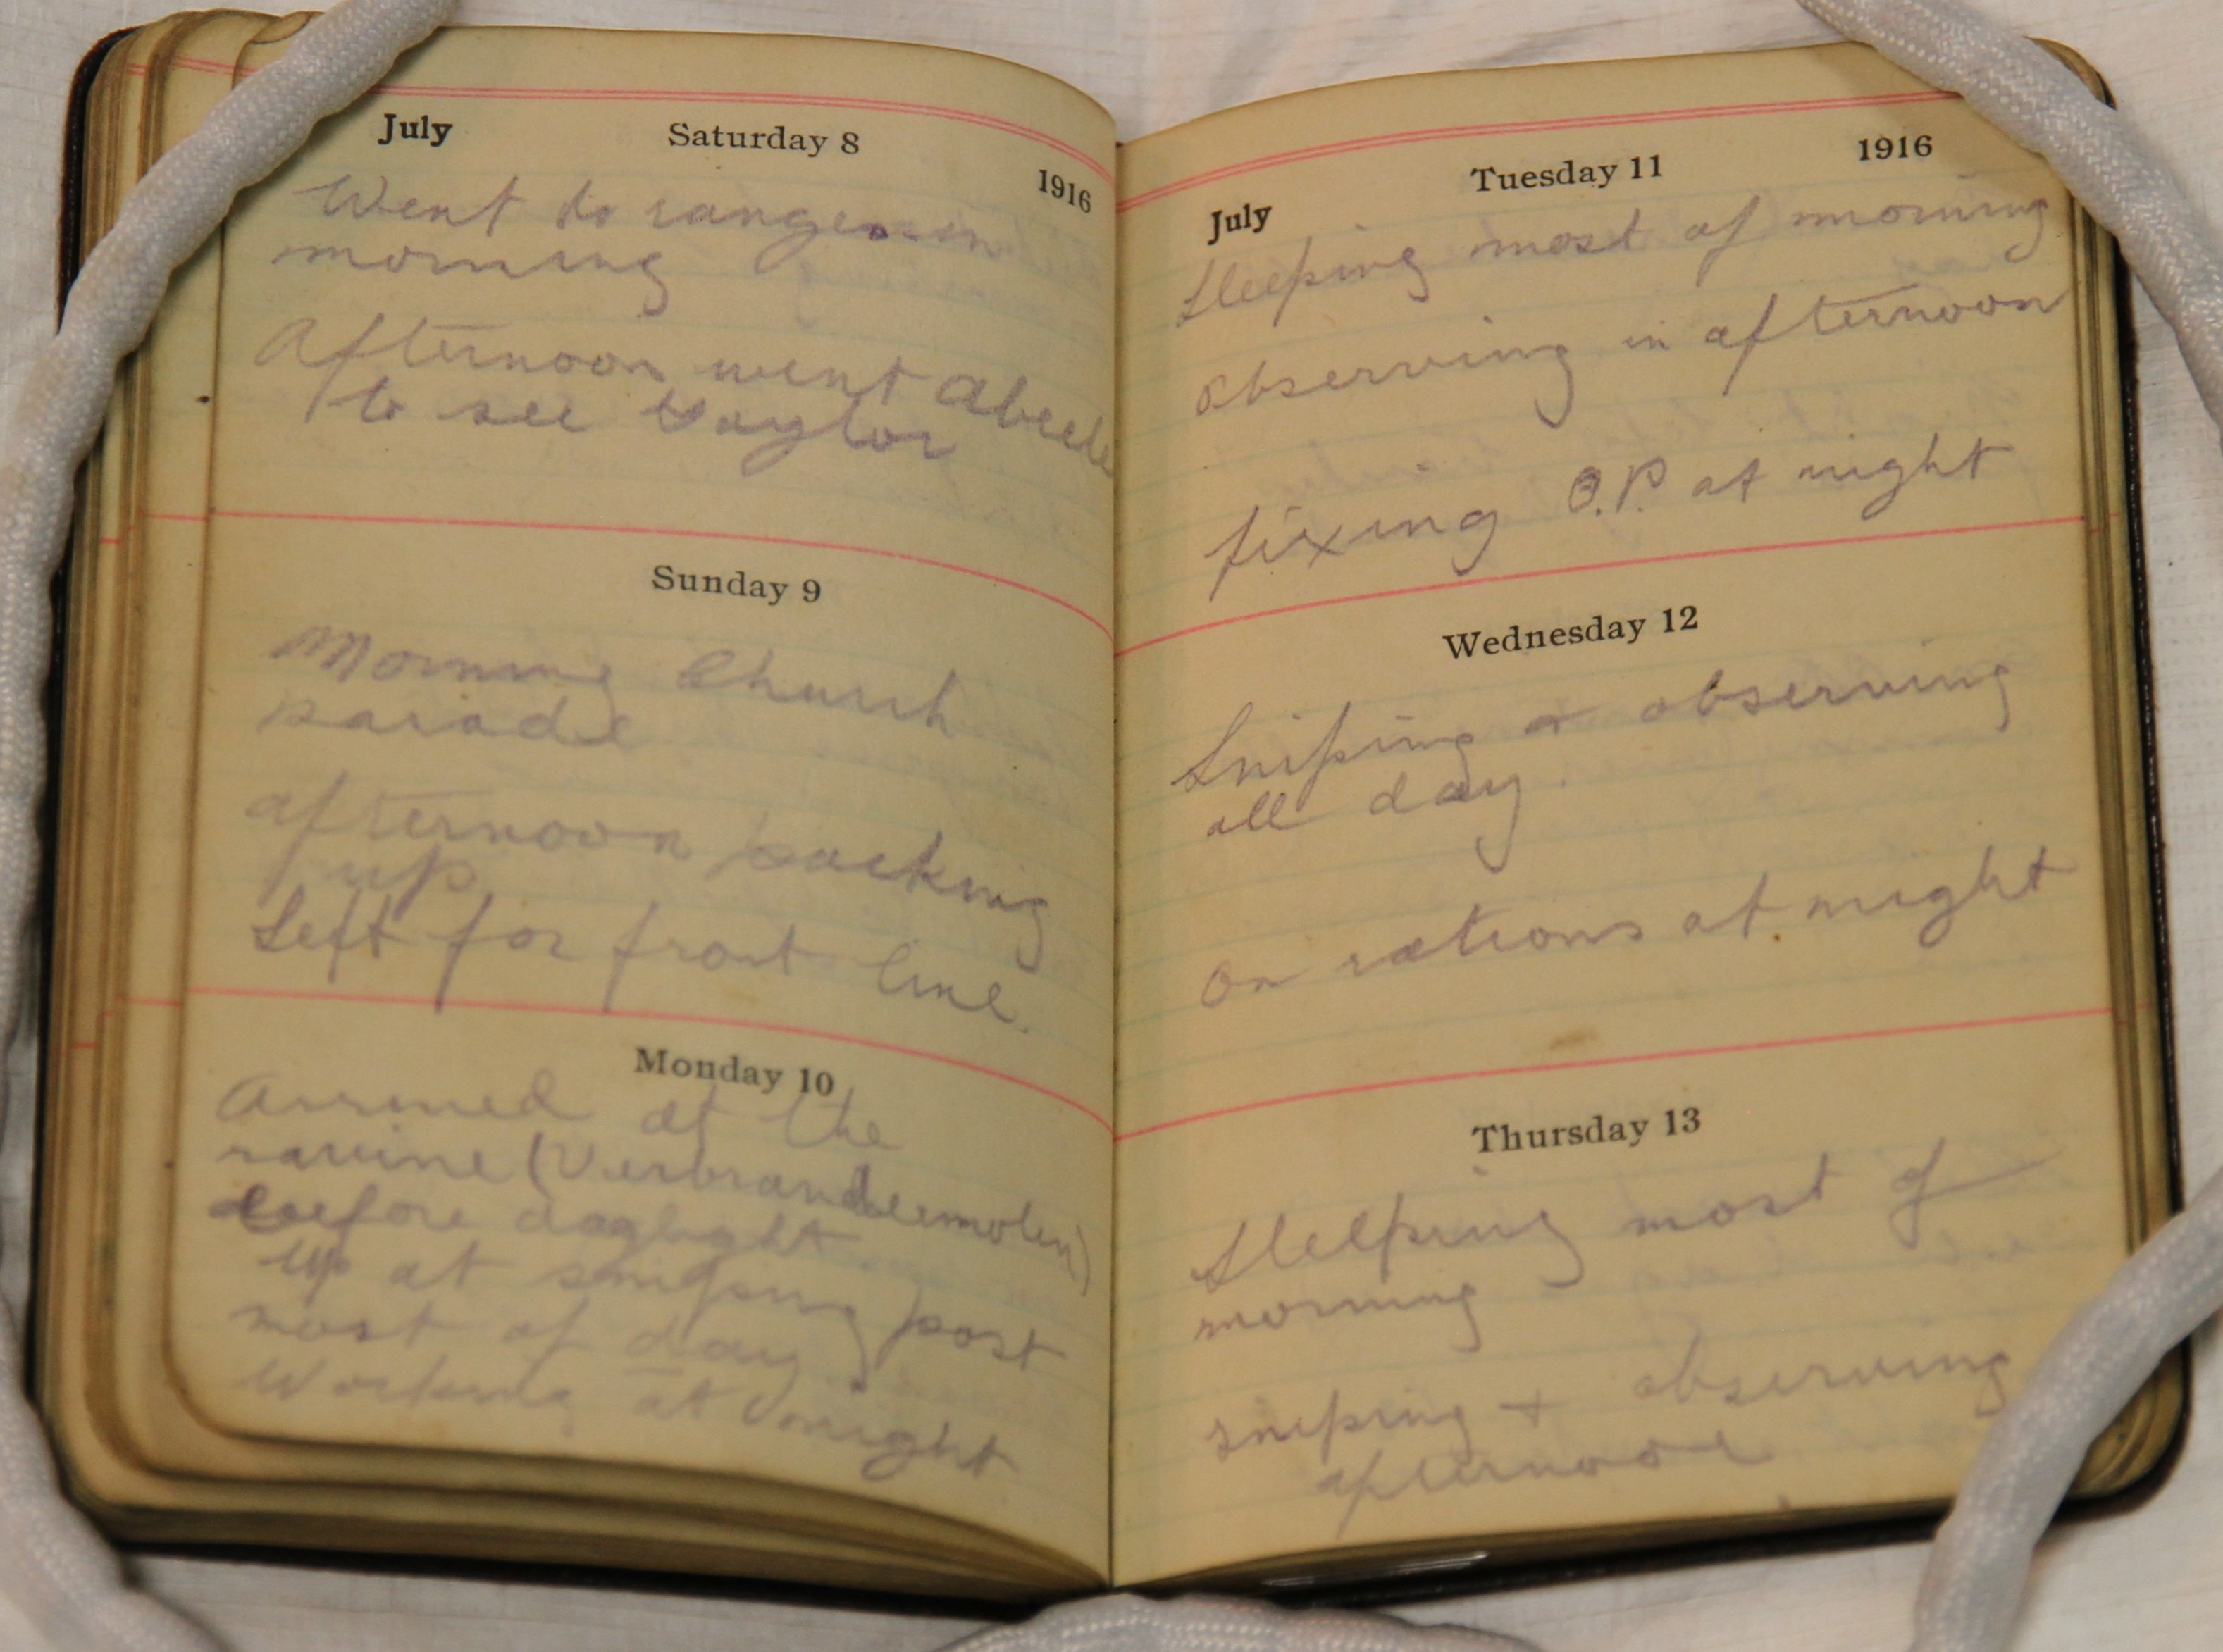 July Saturday 8 1916
Went to ranges in
morning
Afternoon went Abeele
to see Taylor
Sunday 9
Morning Church
parade
afternoon packing
up
Left for front line.
Monday 10
Arrived at the
ravine (Verbrandenmolen)
before daylight.
Up at sniping post
most of day
Working at night
July Tuesday 11 1916
Sleeping most of morning
Observing in afternoon
fixing O.P. at night
Wednesday 12
Sniping & observing
all day.
On rations at night
Thursday 13
Sleeping most of
morning
sniping + observing
afternoon